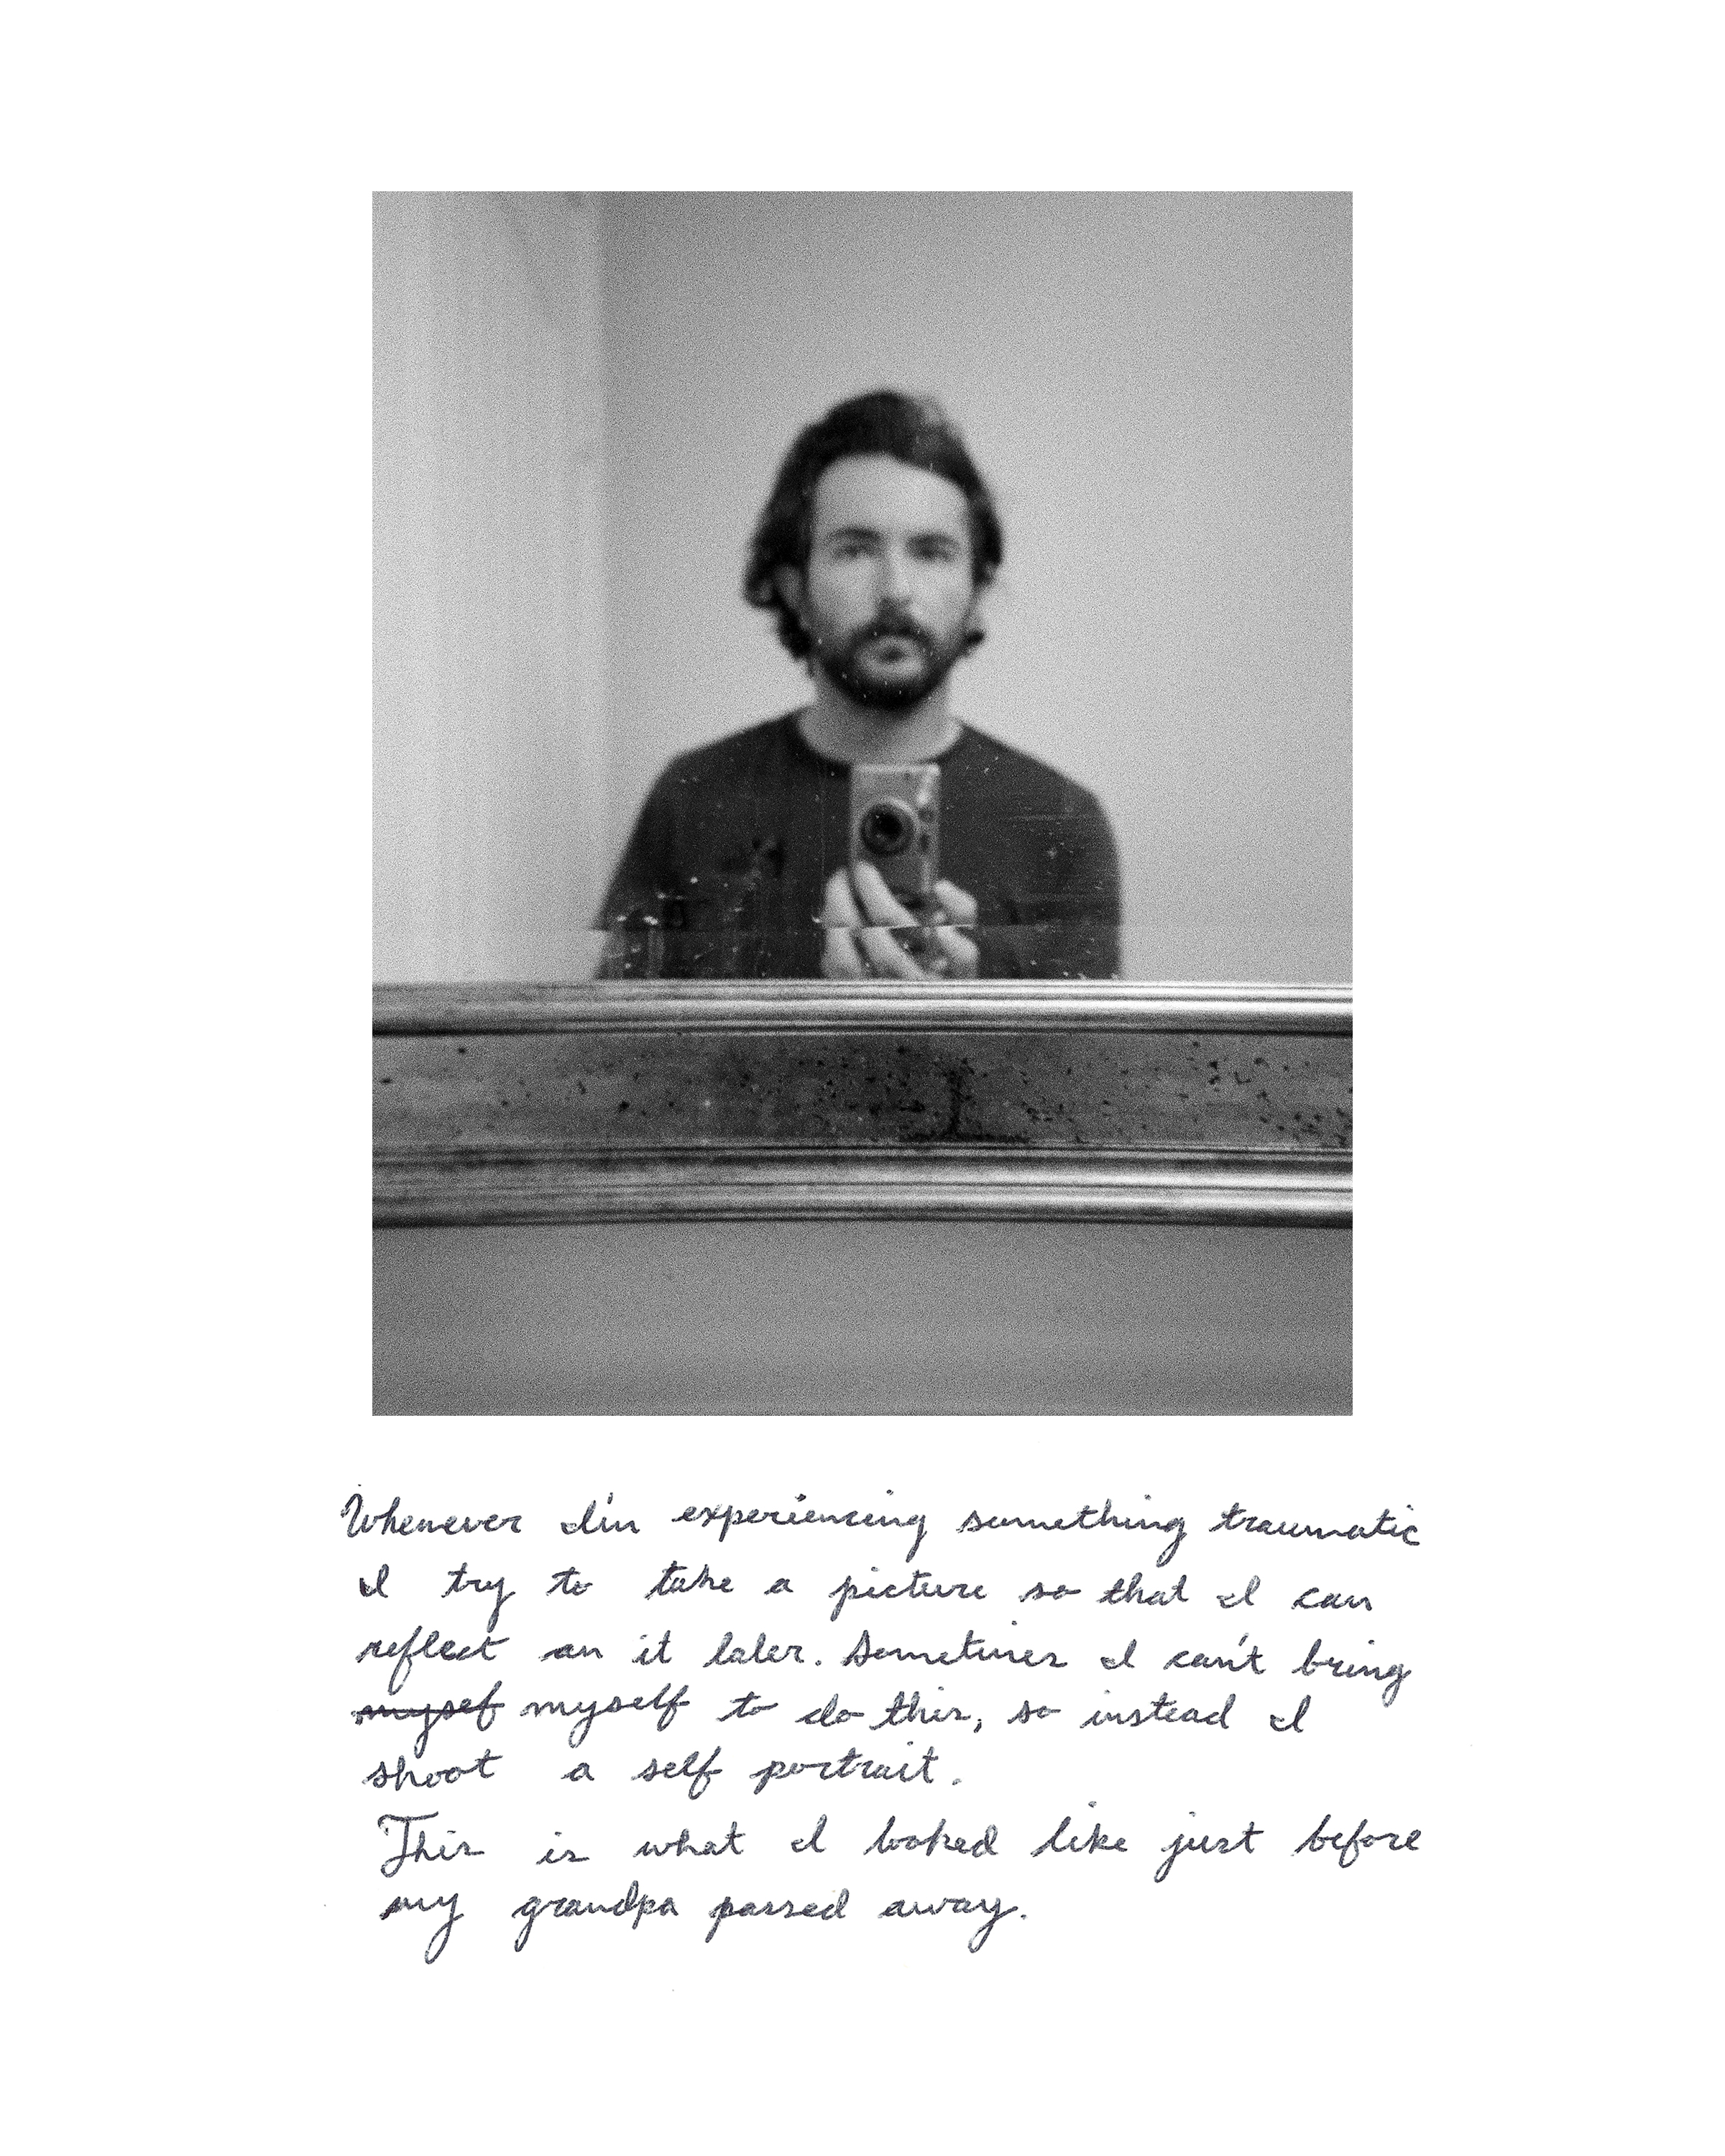 Whenever I'm experiencing something traumatic
I try to take a picture so that I can
reflect on it later. Sometimes I can't bring
mysef myself to do this, so instead I
shoot a self portrait.
This is what I looked like just before
my grandpa passed away.